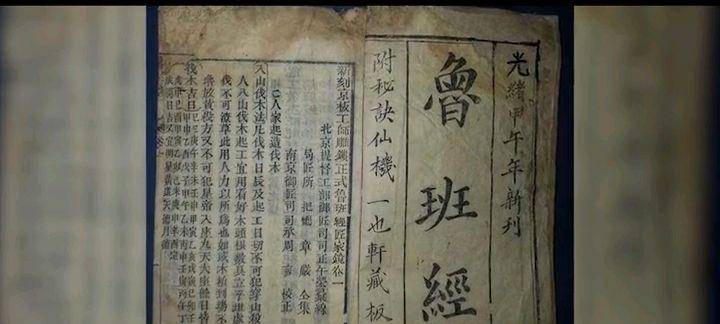 光緒甲午年新刊
魯班經
附秘訣仙機 一也軒藏板
新刻京板工師雕鏤正式魯班經匠家鏡卷一
北京提督工部御匠司司正午榮彙編
局匠所 把總 章嚴 仝集
南京御匠司司承周言 校正
人家起造伐木
入山伐木法凡伐木日辰及起工日切不可犯穿山殺
入山伐木起工宜用看好木頭根數具立平坦處
伐不可潦草此用人力以所為也如或木植到塲不
堆放黃殺方又不可犯皇帝八座九天大座餘日皆
伐木吉日